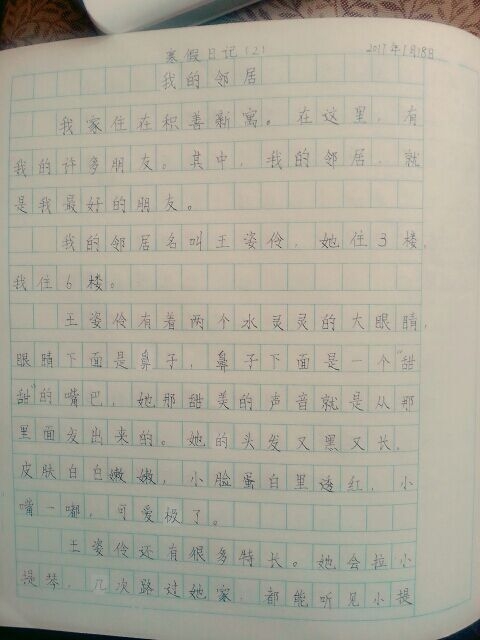 寒假日记(2) 2017年1月18日
我的邻居
我家住在积善新寓。在这里,有
我的许多朋友。其中,我的邻居,就
是我最好的朋友。
我的邻居名叫王姿伶,她住3楼,
我住6楼。
王姿伶有着两个水灵灵的大眼睛,
眼睛下面是鼻子,鼻子下面是一个“甜
甜”的嘴巴,她那甜美的声音就是从那
里面发出来的。她的头发又黑又长,
皮肤白白嫩嫩,小脸蛋白里透红,小
嘴一嘟,可爱极了。
王姿伶还有很多特长。她会拉小
提琴,几次路过她家,都能听见小提